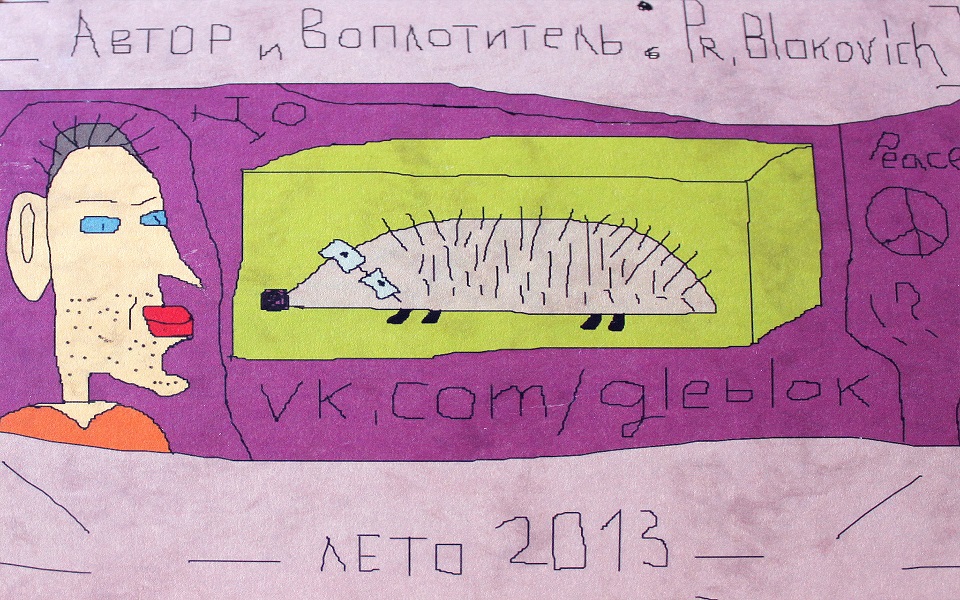 Автор и Воплотитель: Pr. Blokovich
Peace
vk.com/gleblok
— ЛЕТО 2013 —